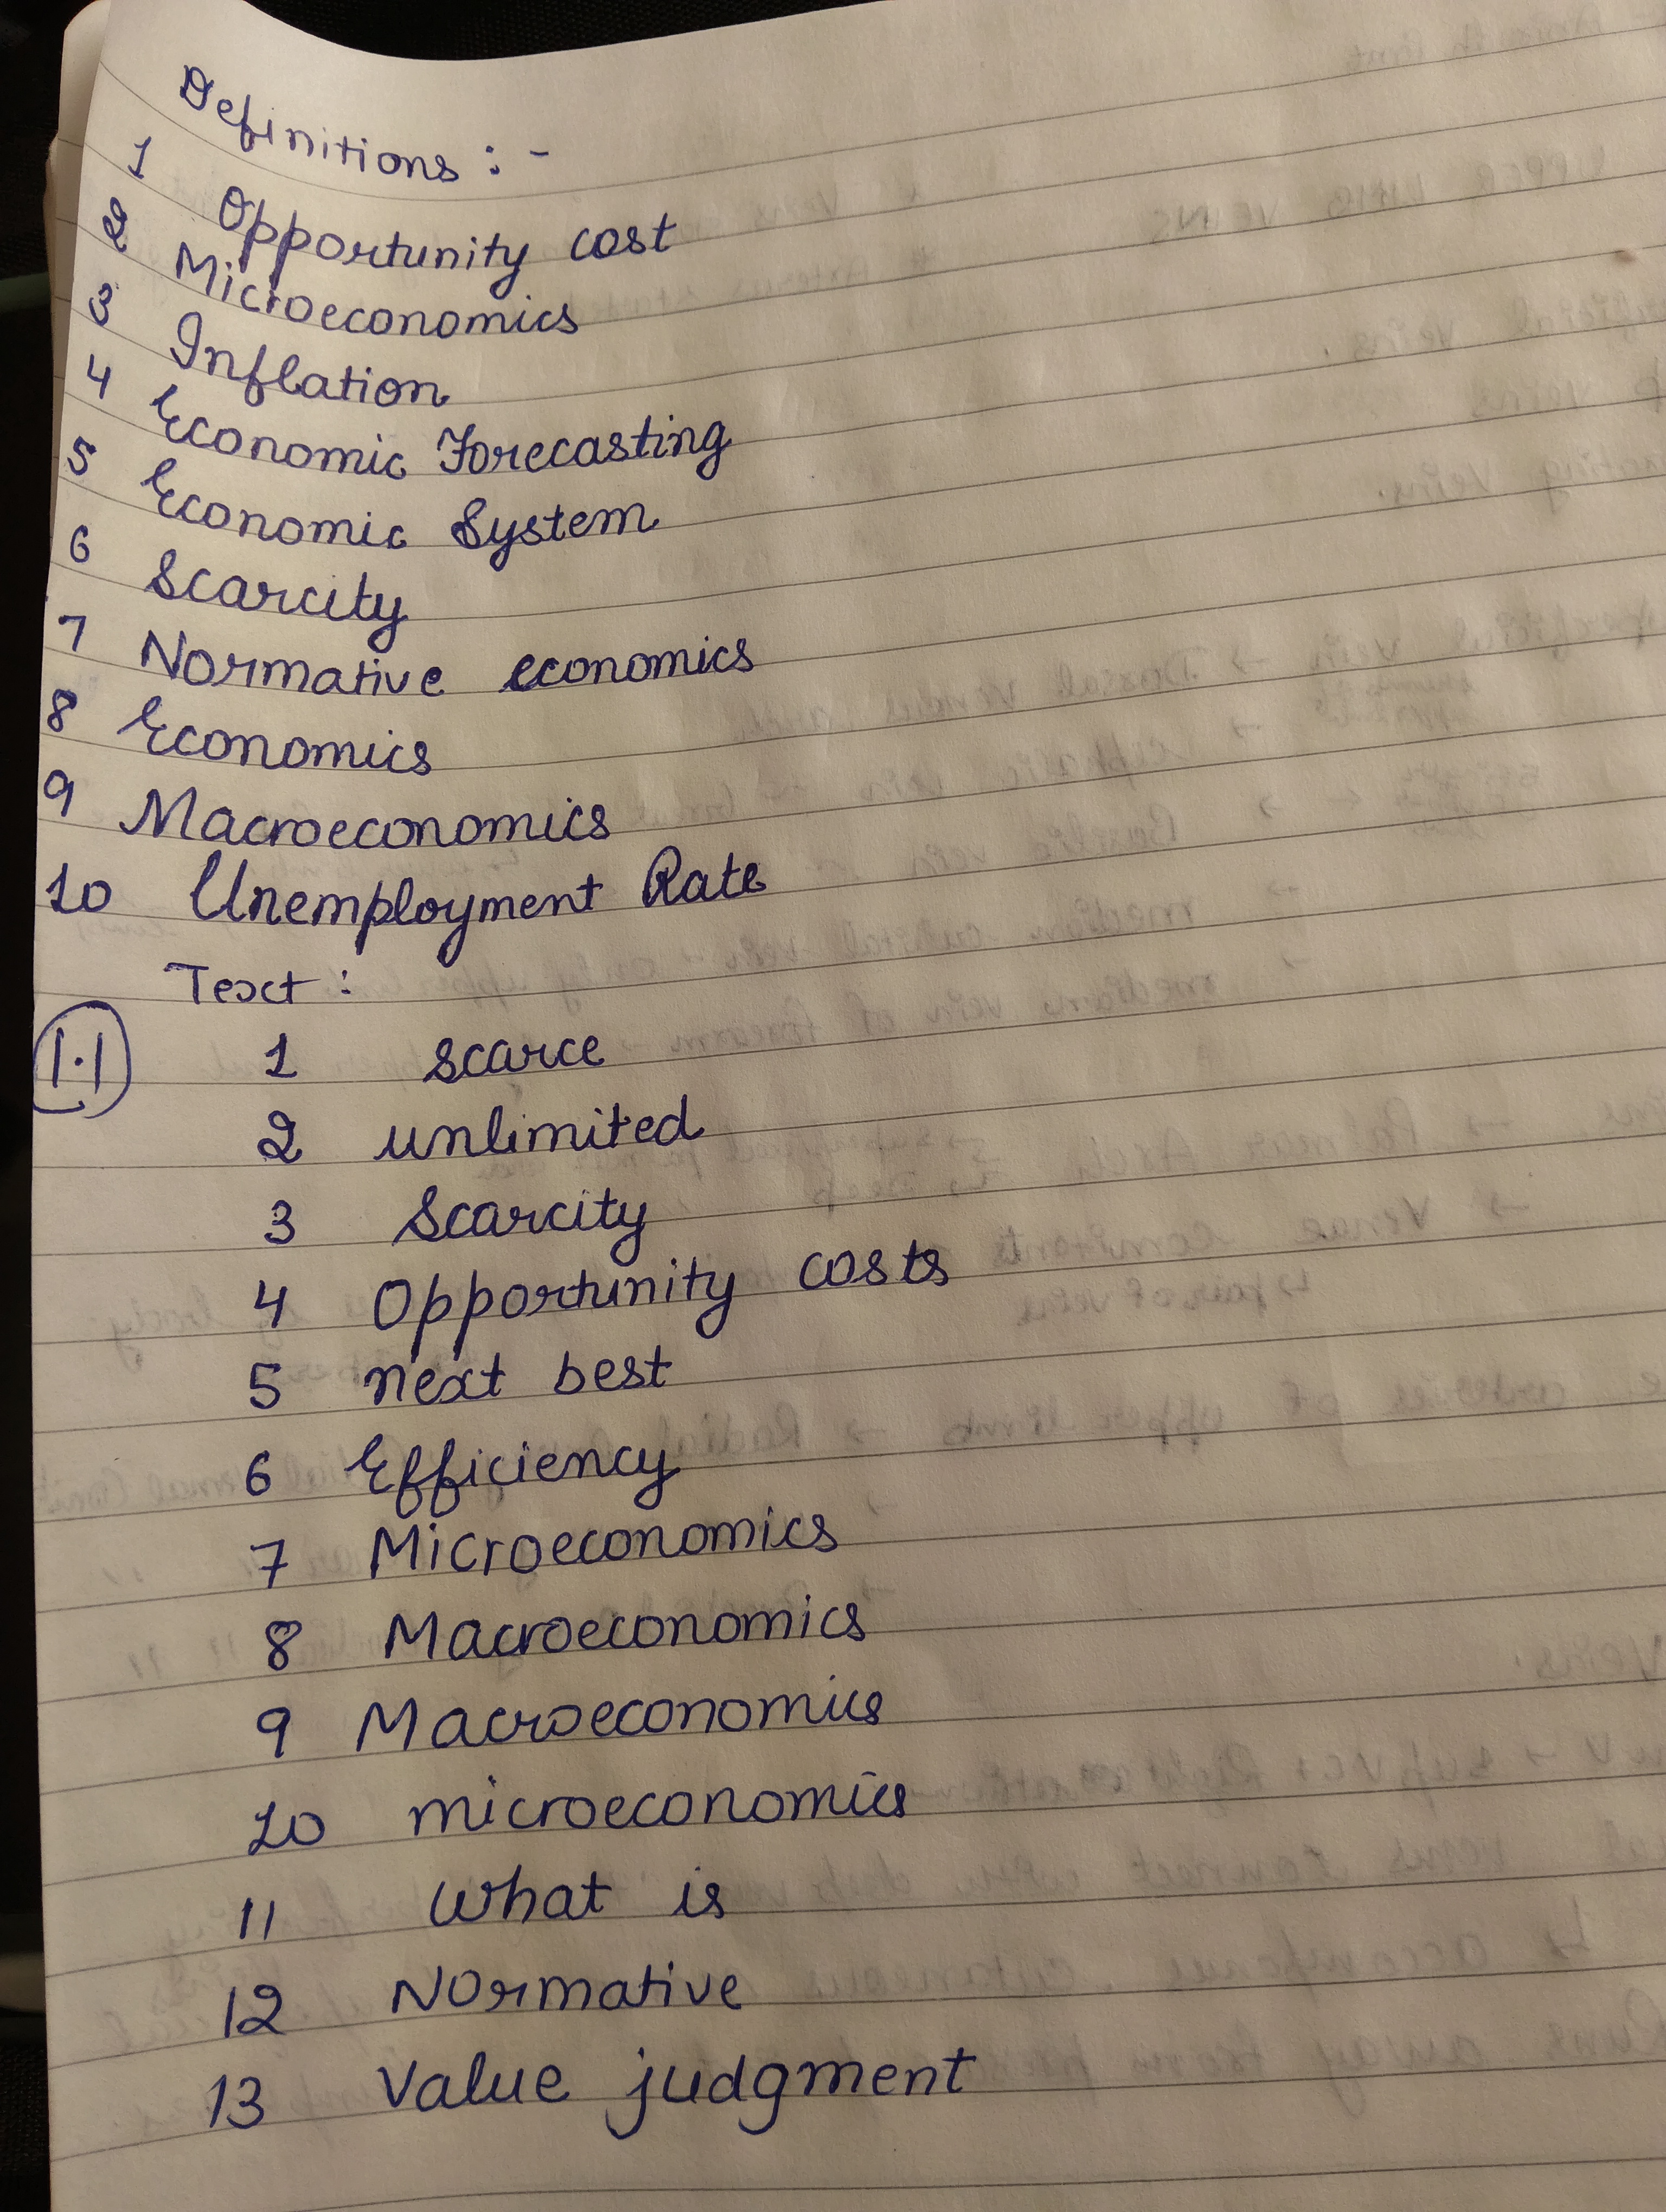 Definitions :-
1 Opportunity cost
2 Microeconomics
3 Inflation
4 Economic Forecasting
5 Economic System
6 Scarcity
7 Normative economics
8 Economics
9 Macroeconomics
10 Unemployment Rate
Text :
1.1 1 scarce
2 unlimited
3 Scarcity
4 Opportunity costs
5 next best
6 Efficiency
7 Microeconomics
8 Macroeconomics
9 Macroeconomics
10 microeconomics
11 What is
12 Normative
13 Value judgment